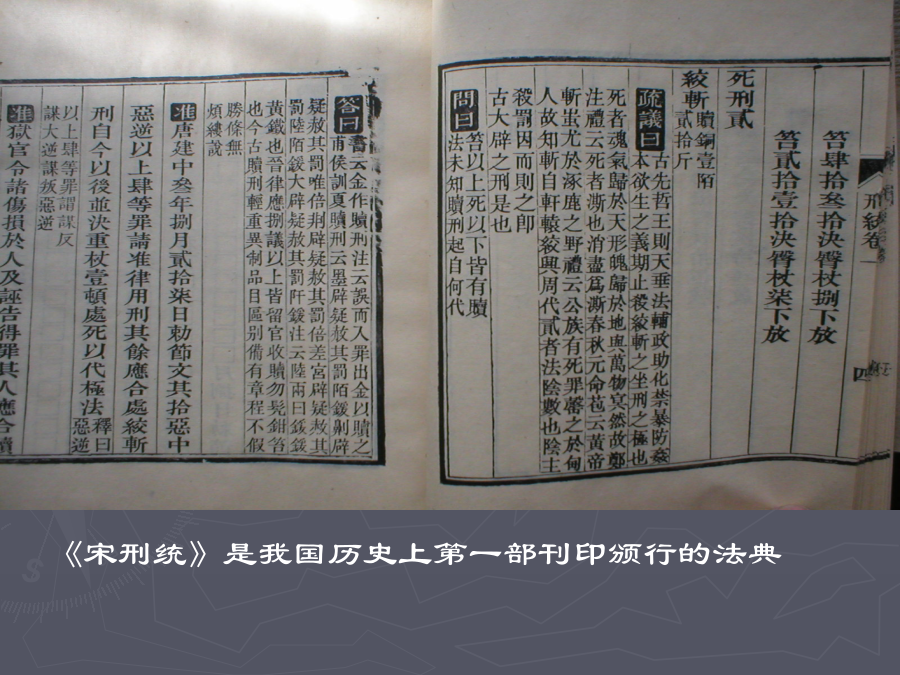 笞肆拾叁拾決臀杖捌下放
笞貳拾壹拾決臀杖柒下放
死刑貳
絞斬贖銅壹陌貳拾斤
疏議曰古先哲王則天垂法輔政助化禁暴防姦
本欲生之義期止殺絞斬之坐刑之極也
死者魂氣歸於天形魄歸於地與萬物冥然故鄭
注禮云死者澌也消盡為澌春秋元命苞云黃帝
斬蚩尤於涿鹿之野禮云公族有死罪罄之於甸
人故知斬自軒轅絞興周代貳者法陰數也陰主
殺罰因而則之即
古大辟之刑是也
問曰笞以上死以下皆有贖
法未知贖刑起自何代
刑統卷一
四
答曰書云金作贖刑注云誤而入罪出金以贖之
甫侯訓夏贖刑云墨辟疑赦其罰陌鍰劓辟
疑赦其罰唯倍剕辟疑赦其罰倍差宮辟疑赦其
罰陸陌鍰大辟疑赦其罰阡鍰注云陸兩曰鍰鍰
黃鐵也晉律應捌議以上皆留官收贖勿髡鉗笞
也今古贖刑輕重異制品目區別備有章程不假
勝條無
煩縷說
准唐建中叁年捌月貳拾柒日勅節文其拾惡中
惡逆以上肆等罪請准律用刑其餘應合處絞斬
刑自今以後並決重杖壹頓處死以代極法釋曰惡逆
以上肆等罪謂謀反
謀大逆謀叛惡逆
准獄官令諸傷損於人及誣告得罪其人應合贖
《宋刑统》是我国历史上第一部刊印颁行的法典